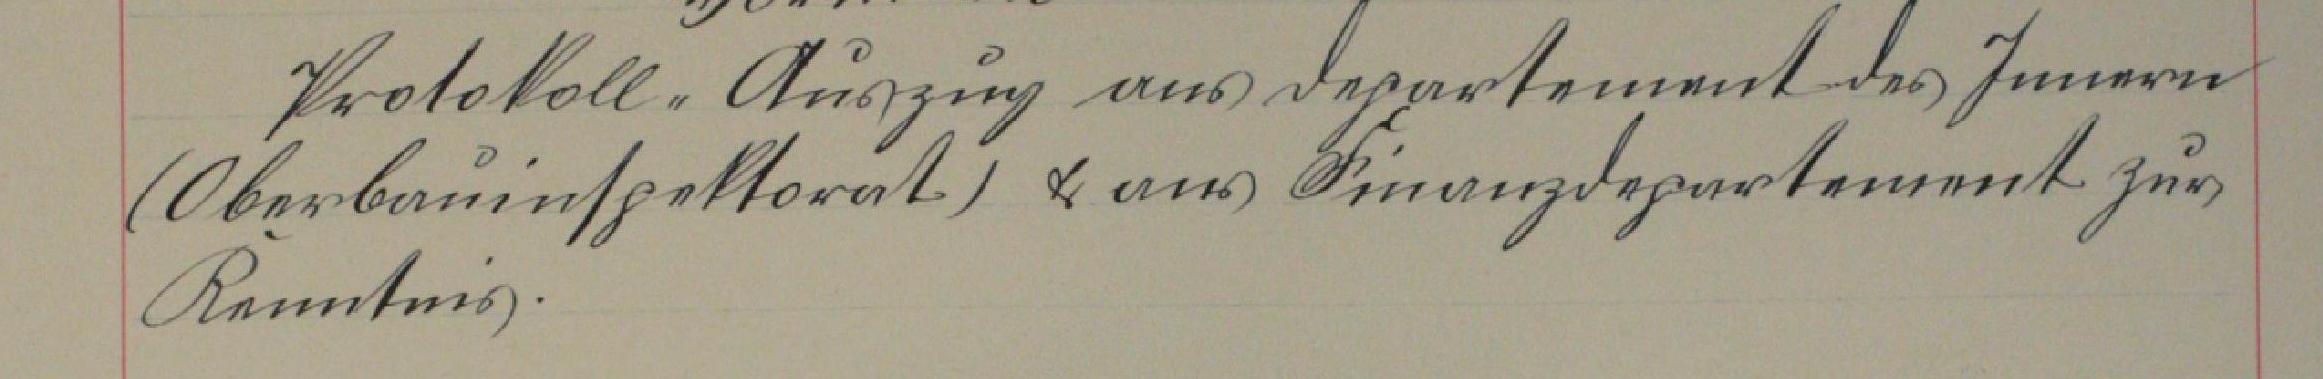 Protokoll-Auszug ans Departement des Innern
(Oberbauinspektorat) & ans Finanzdepartement zur
Kenntnis.